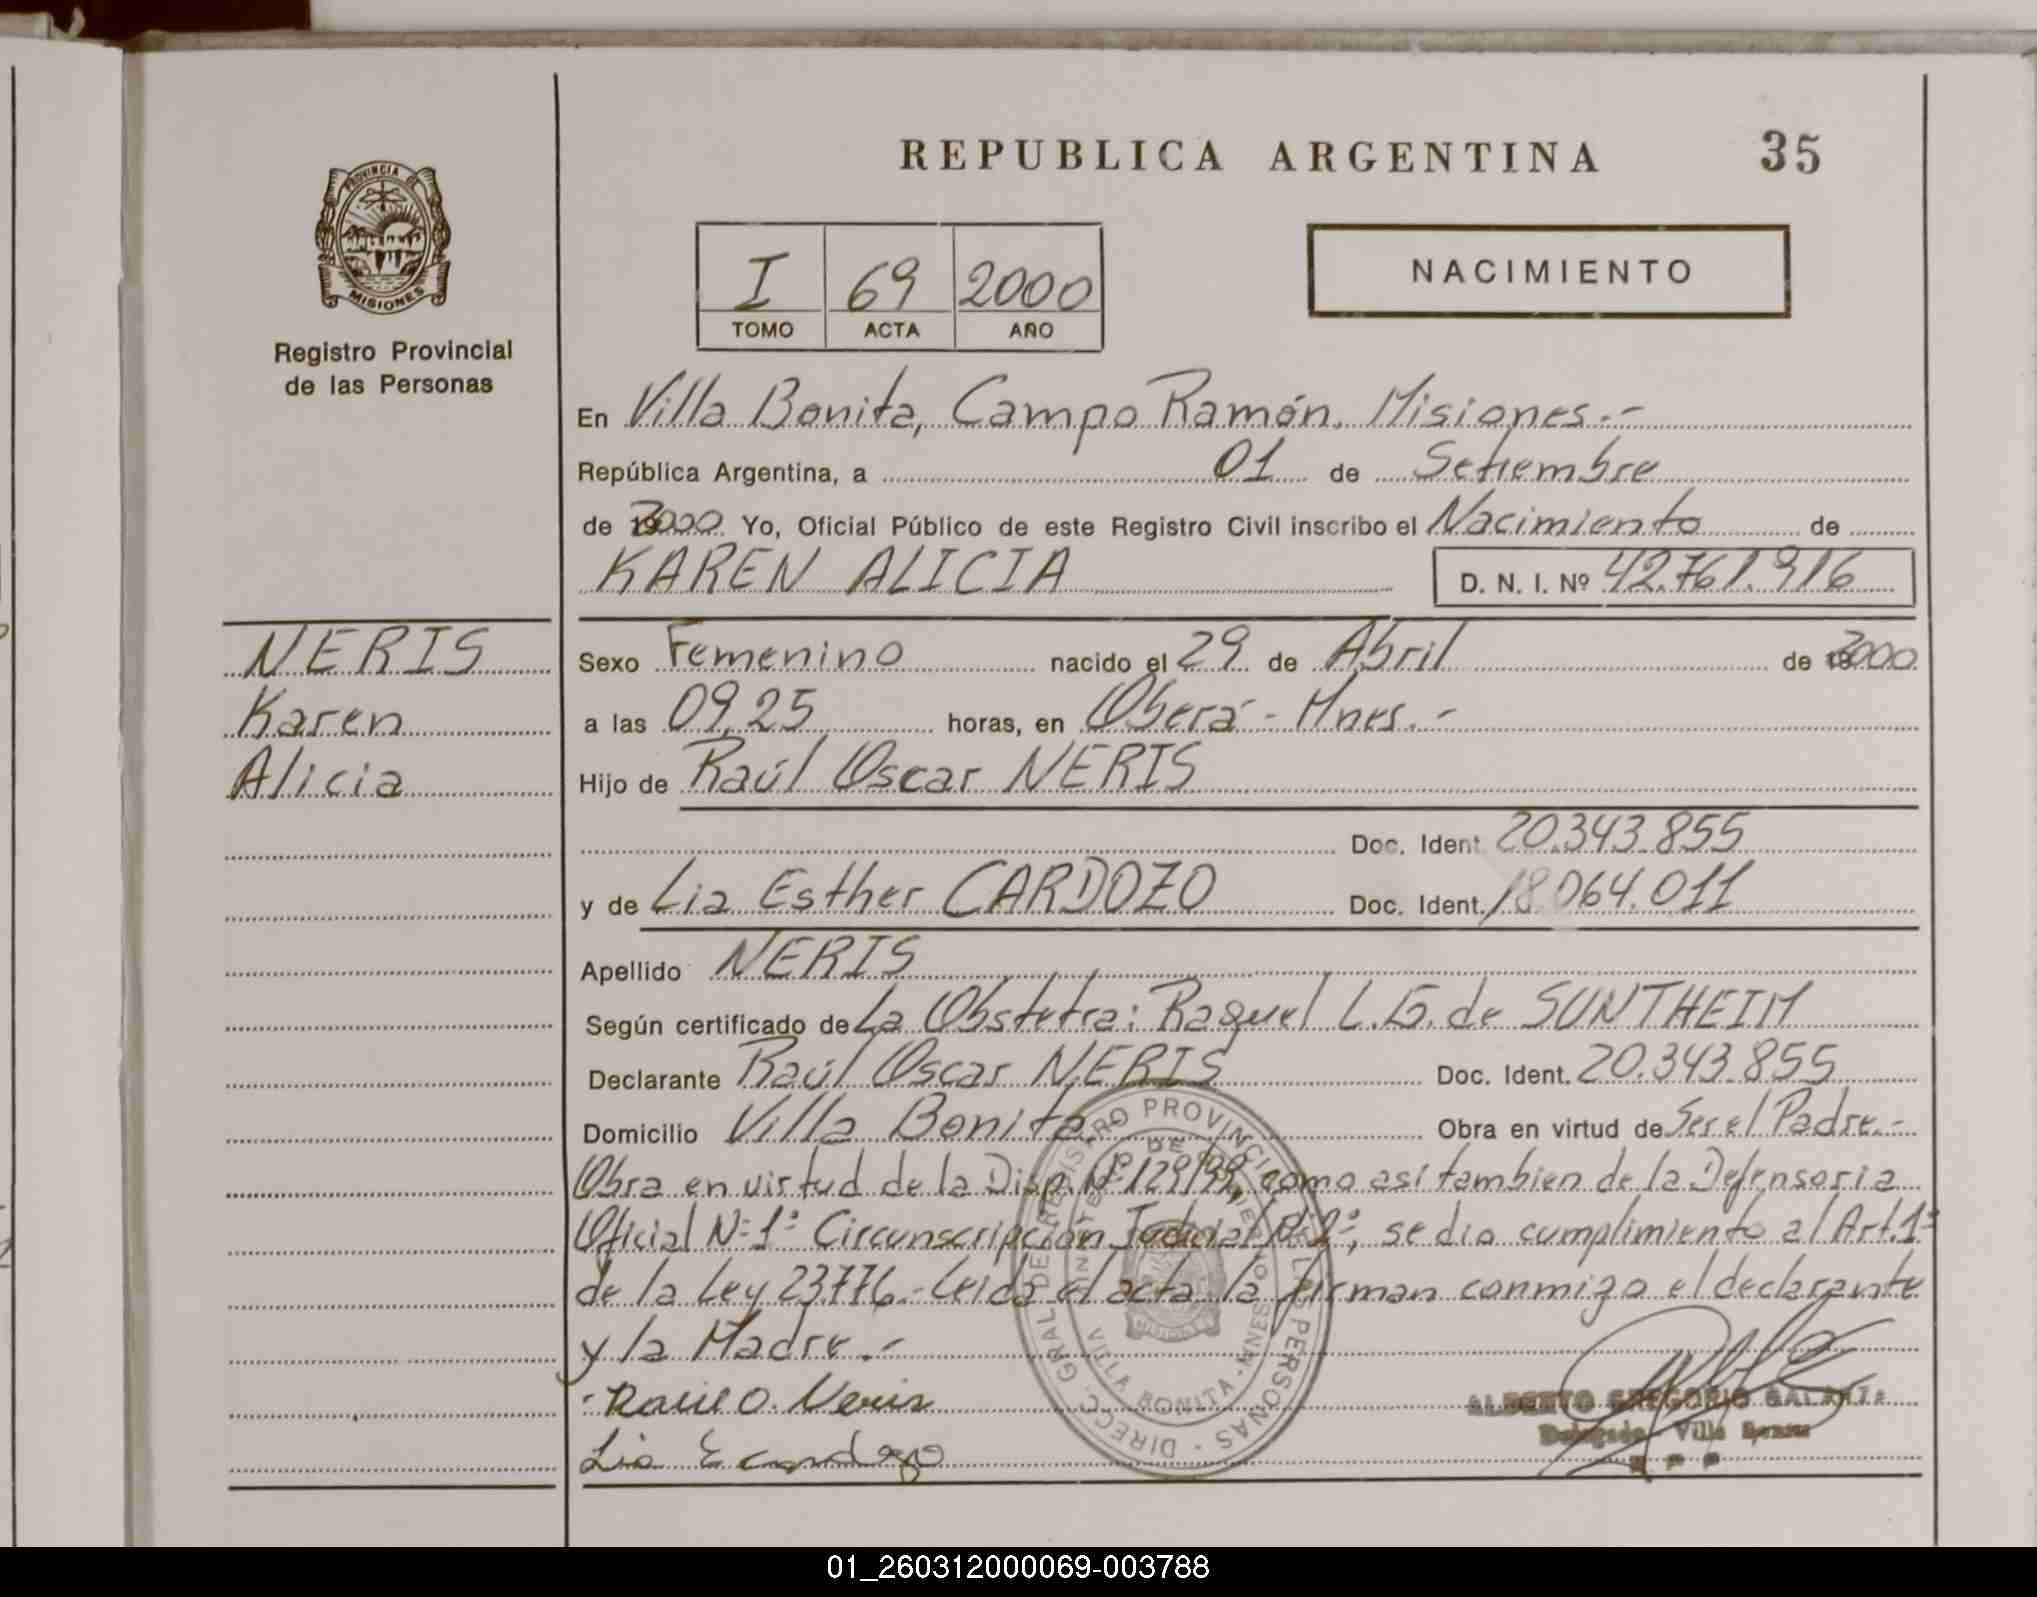 REPUBLICA ARGENTINA 35
PROVINCIA DE
MISIONES
Registro Provincial
de las Personas
I 69 2000
TOMO ACTA AÑO
NACIMIENTO
En Villa Bonita, Campo Ramón, Misiones.-
República Argentina, a 01 de Setiembre
de 2000 Yo, Oficial Público de este Registro Civil inscribo el Nacimiento de
KAREN ALICIA D. N. I. Nº 42.761.916
NERIS
Karen
Alicia
Sexo Femenino nacido el 29 de Abril de 2000
a las 09,25 horas, en Oberá - Mnes.-
Hijo de Raúl Oscar NERIS
Doc. Ident. 20.343.855
y de Lia Esther CARDOZO Doc. Ident. 18.064.011
Apellido NERIS
Según certificado de La Obstetra: Raquel L.G. de SUNTHEIM
Declarante Raúl Oscar NERIS Doc. Ident. 20.343.855
Domicilio Villa Bonita Obra en virtud de Ser el Padre.-
Obra en virtud de la Disp. Nº 129/99, como asi tambien de la Defensoria
Oficial Nº 1º Circunscripción Judicial Nº 2º, se dio cumplimiento al Art. 1º
de la Ley 23.776.- Leida el acta la firman conmigo el declarante
y la Madre.-
Raul O. Neris
Lia E Cardozo
DIRECC. GRAL. DE REGISTRO PROVINCIAL DE LAS PERSONAS
MINISTERIO DE GOBIERNO
VILLA BONITA - MNES
MISIONES
ALBERTO GREGORIO
Delegado Villa Bonita
01_260312000069-003788